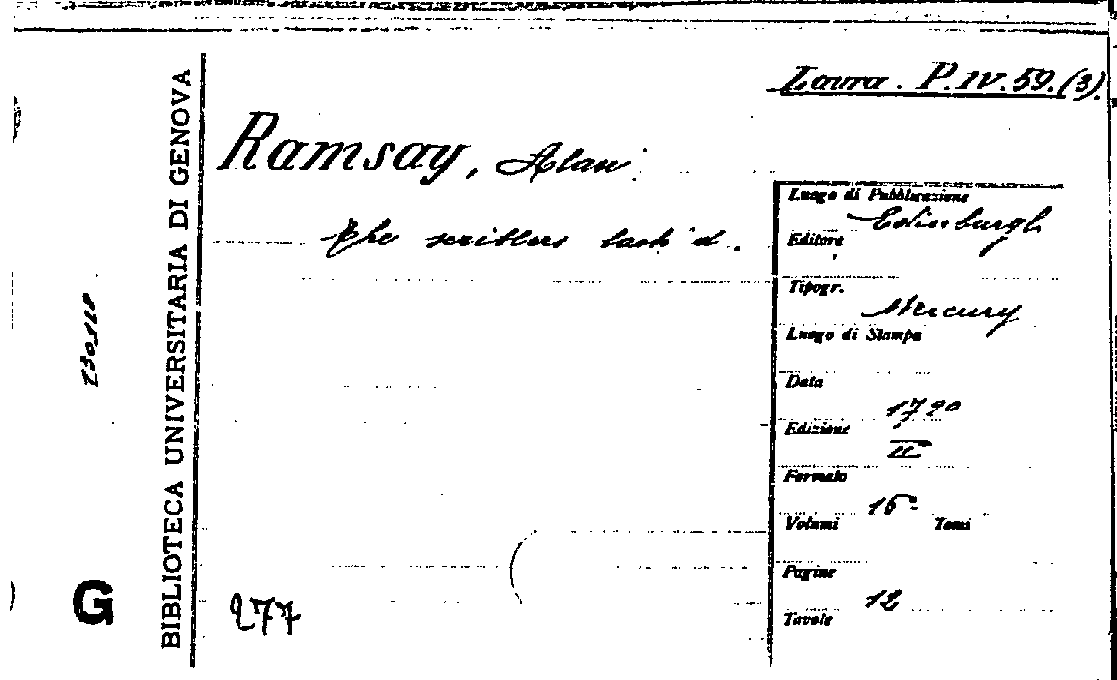 Laura. P. IV. 59. (3).
Ramsay, Alan.
The scriblers lash'd.
Luogo di Pubblicazione
Edinburgh
Editore
Tipogr.
Mercury
Luogo di Stampa
Data
1720
Edizione
II
Formato
16°
Volumi Tomi
Pagine
12
Tavole
BIBLIOTECA UNIVERSITARIA DI GENOVA
G
277